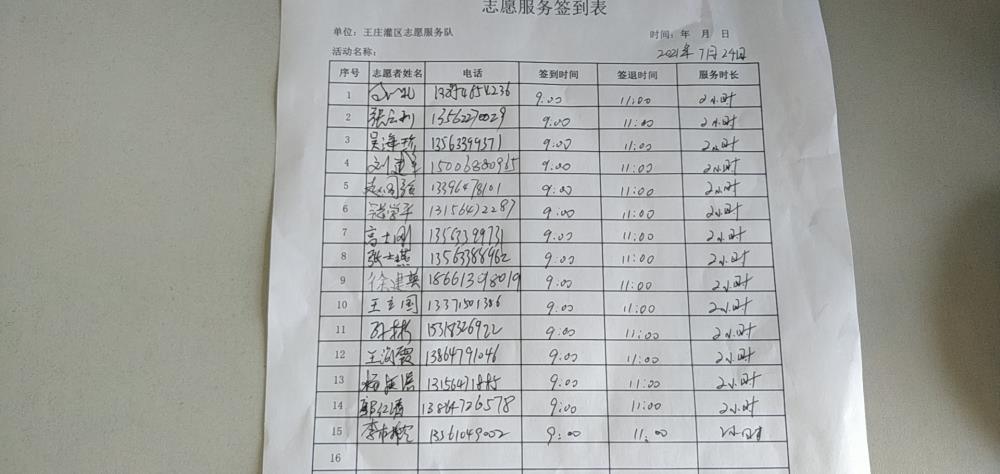 志愿服务签到表
单位：王庄灌区志愿服务队 时间：年 月 日
活动名称： 2021年7月24日
序号 志愿者姓名 电话 签到时间 签退时间 服务时长
1 9:00 11:00 2小时
2 13562270029 9:00 11:00 2小时
3 吴海珍 13563399371 9:00 11:00 2小时
4 刘建军 15006880965 9:00 11:00 2小时
5 13396478101 9:00 11:00 2小时
6 13156472287 9:00 11:00 2小时
7 高士刚 13563399731 9:00 11:00 2小时
8 张士燕 13563388962 9:00 11:00 2小时
9 徐建英 18661398019 9:00 11:00 2小时
10 王立国 13371501386 9:00 11:00 2小时
11 15318326922 9:00 11:00 2小时
12 王海霞 13864791046 9:00 11:00 2小时
13 13156471885 9:00 11:00 2小时
14 13864726578 9:00 11:00 2小时
15 13561049002 9:00 11:00 2小时
16